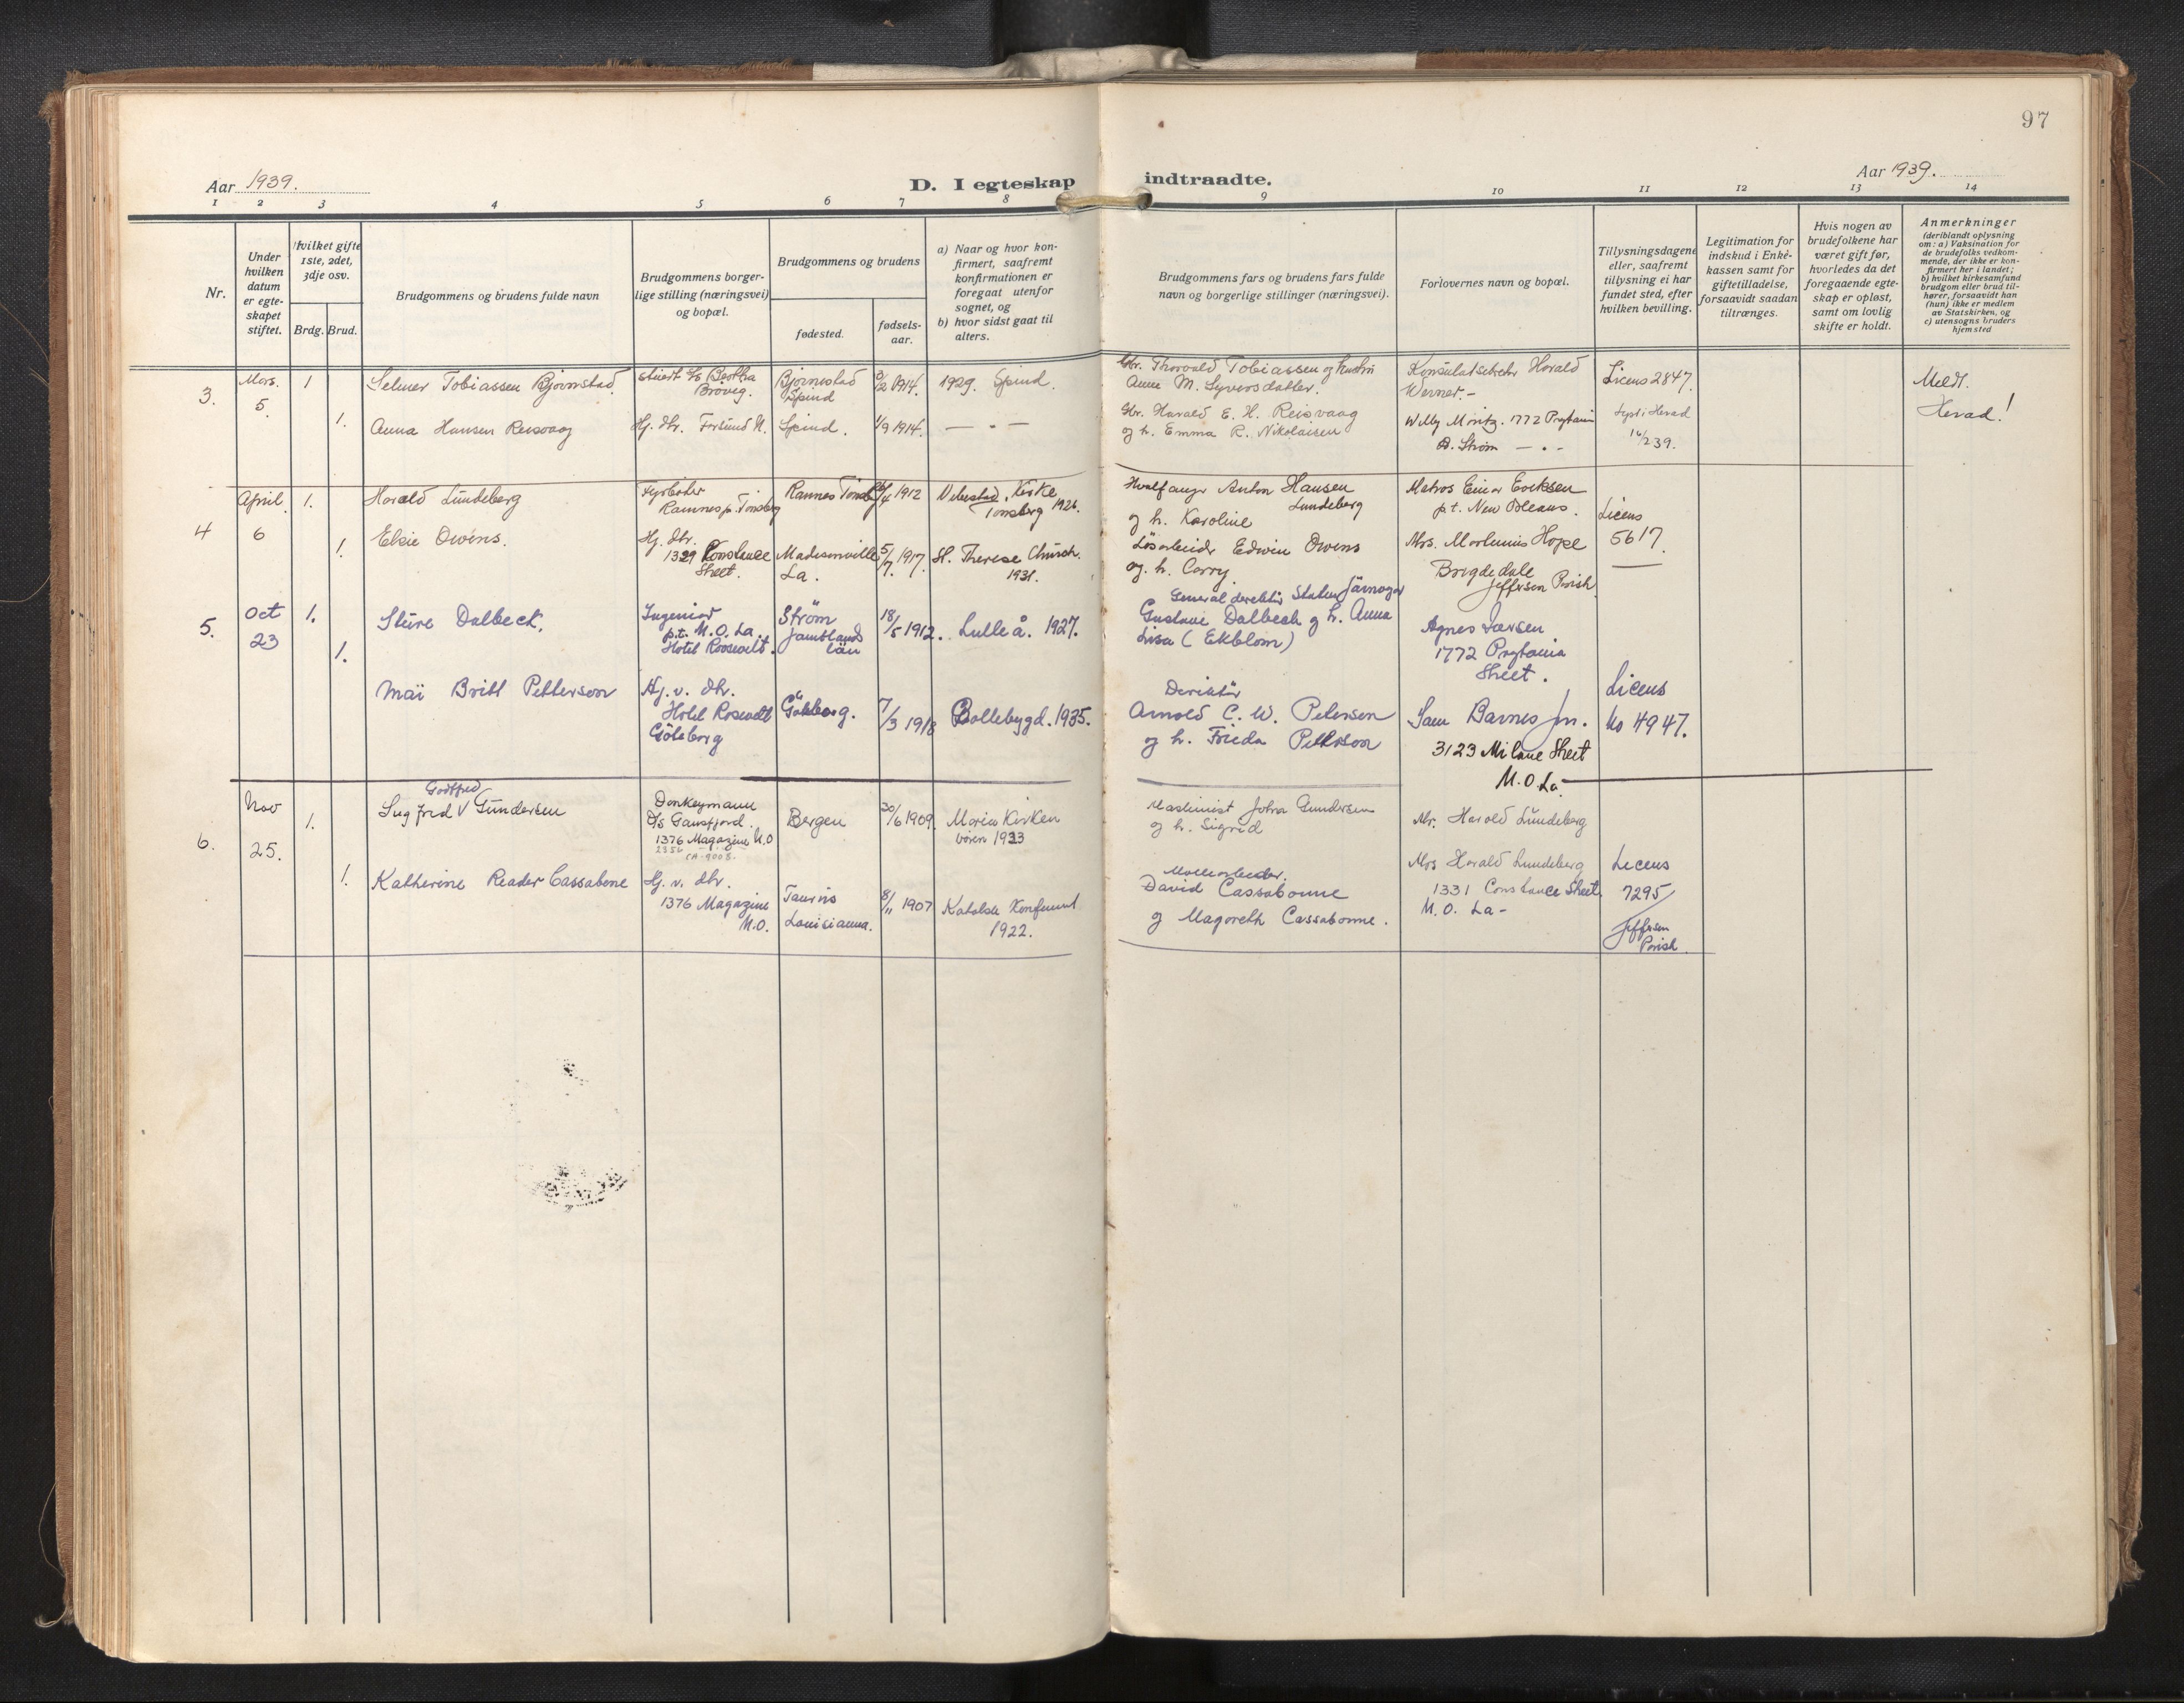 97
Aar 1939.
D. I egteskap indtraadte.
Aar 1939.
1 2 3 4 5 6 7 8 9 10 11 12 13 14
Nr.
Under
hvilken
datum
er egte-
skapet
stiftet.
Hvilket gifte
1ste, 2det,
3dje osv.
Brdg. Brud.
Brudgommens og brudens fulde navn
Brudgommens borger-
lige stilling (næringsvei)
og bopæl.
Brudgommens og brudens
fødested.
fødsels-
aar.
a) Naar og hvor kon-
firmert, saafremt
konfirmationen er
foregaat utenfor
sognet, og
b) hvor sidst gaat til
alters.
Brudgommens fars og brudens fars fulde
navn og borgerlige stillinger (næringsvei).
Forlovernes navn og bopæl.
Tillysningsdagene
eller, saafremt
tillysning ei har
fundet sted, efter
hvilken bevilling.
Legitimation for
indskud i Enke-
kassen samt for
giftetilladelse,
forsaavidt saadan
tiltrænges.
Hvis nogen av
brudefolkene har
været gift før,
hvorledes da det
foregaaende egte-
skap er opløst,
samt om lovlig
skifte er holdt.
Anmerkninger
(deriblandt oplysning
om: a) Vaksination for
de brudefolks vedkom-
mende, der ikke er kon-
firmert her i landet;
b) hvilket kirkesamfund
brudgom eller brud til-
hører, forsaavidt han
(hun) ikke er medlem
av Statskirken, og
c) utensogns bruders
hjemsted
3.
Mars.
5.
1
Selmer Tobiassen Bjørnstad.
Stuert S/S Bertha
Brøvig.
Bjørnestad
Spind
/2 1914.
1929. Spind.
Gbr. Thorvald Tobiassen og hustru
Anne M. Syversdatter.
Konsulatsekretær Harald
Werner.-
Licens 2847.
Meldt.
Herad!
1.
Anna Hansen Reisvaag
Hj. dtr. Farsund N.
Spind.
1/9 1914.
— " —
Gbr. Harald E. H. Reisvaag
og h. Emma R. Nikolaisen
Willy Moritz. 1772 Prytania
O. Strøm — " -
Lyst i Herad
16/2 39.
4
April
6
1.
Harald Lundeberg
Fyrbøter
Ramnes p. Tønsberg
Ramnes Tønsb.
/4 1912
Kirke
Tønsberg 1926.
Hvalfanger Anton Hansen
Lundeberg
og h. Karoline
Matros Einar Eriksen
p.t. New Orleans.
Licens
5617.
1.
Elsie Owens.
Hj. dtr.
1329 Constance
Street.
Madisonville
La.
5/7. 1917.
St. Therese Church.
1931.
Løsarbeider Edwin Owens
og h. Carry.
Mrs. Martinius Hope
Brigdedale
Jefferson Parish.
5.
Oct
23
1.
Sture Dalbeck.
Ingeniør
p.t. N.O. La.
Hotel Roosevelt.
Ström
Jamtlands
län
18/5 1912.
Lulleå. 1927.
General direktör Staten Järnvägar
Gustave Dalbeck og h. Anna
Lisa (Ekblom)
Agnes Larsen
1772 Prytania
Street.
1.
Mai Britt Petterson
Hj. v. dtr.
Hotel Rosevelt
Göteborg
Göteborg.
7/3 1918
Bollebygd. 1935.
Direktör
Arnold C. W. Petersen
og h. Frieda Petterson
Sam Barnes Jn.
3123 Milane Street
N.O. La.
Licens
No 4947.
6.
Nov
25.
1.
Godtfred
Sugfred V Gundersen
Donkeymann
D/S Gansfjord.
1376 Magazine N.O
Bergen
30/6 1909.
Maria Kirken
våren 1923
Maskinist Johan Gundersen
og h. Sigrid
Mr. Harald Lundeberg
1.
Katherine Reader Cassabene
Hj. v. dtr.
1376 Magazine
N.O.
Taurns
Louisianna.
8/11 1907
Katolsk Konfirmert
1922.
Møllearbeider.
David Cassabonne
og Magareth Cassabonne.
Mrs Harald Lundeberg
1331 Constance Street
N.O. La-
Licens
7295
Jefferson
Parish.